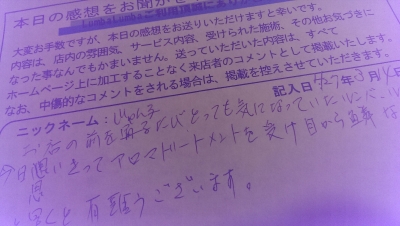 本日の感想をお聞かせ
大変お手数ですが、本日の感想をお送りいただけますと幸いです。
内容は、店内の雰囲気、サービス内容、受けられた施術、その他お気づきに
なった事なんでもかまいません。送っていただいた内容は、すべて
ホームページ上に加工することなく来店者のコメントとして掲載いたします。
なお、中傷的なコメントをされる場合は、掲載を控えさせていただきます。
ニックネーム：じゅん子
記入日 H27年3月
お店の前を通るたびとっても気になっていた
今日思いきってアロマトリートメントを受け目から鱗な
思
有難うございます。